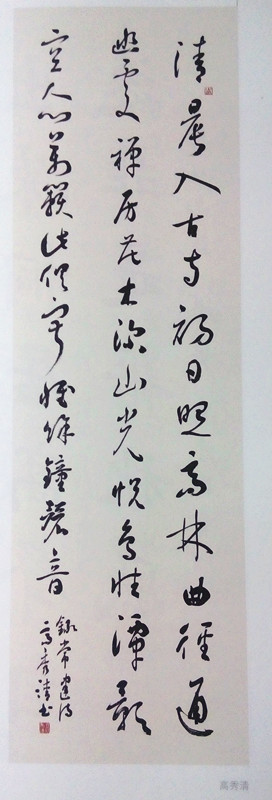 清晨入古寺初日照高林曲徑通
幽處禪房花木深山光悦鳥性潭影
空人心萬籟此俱寂惟餘鐘磬音
録常建詩
高秀清書
高秀清